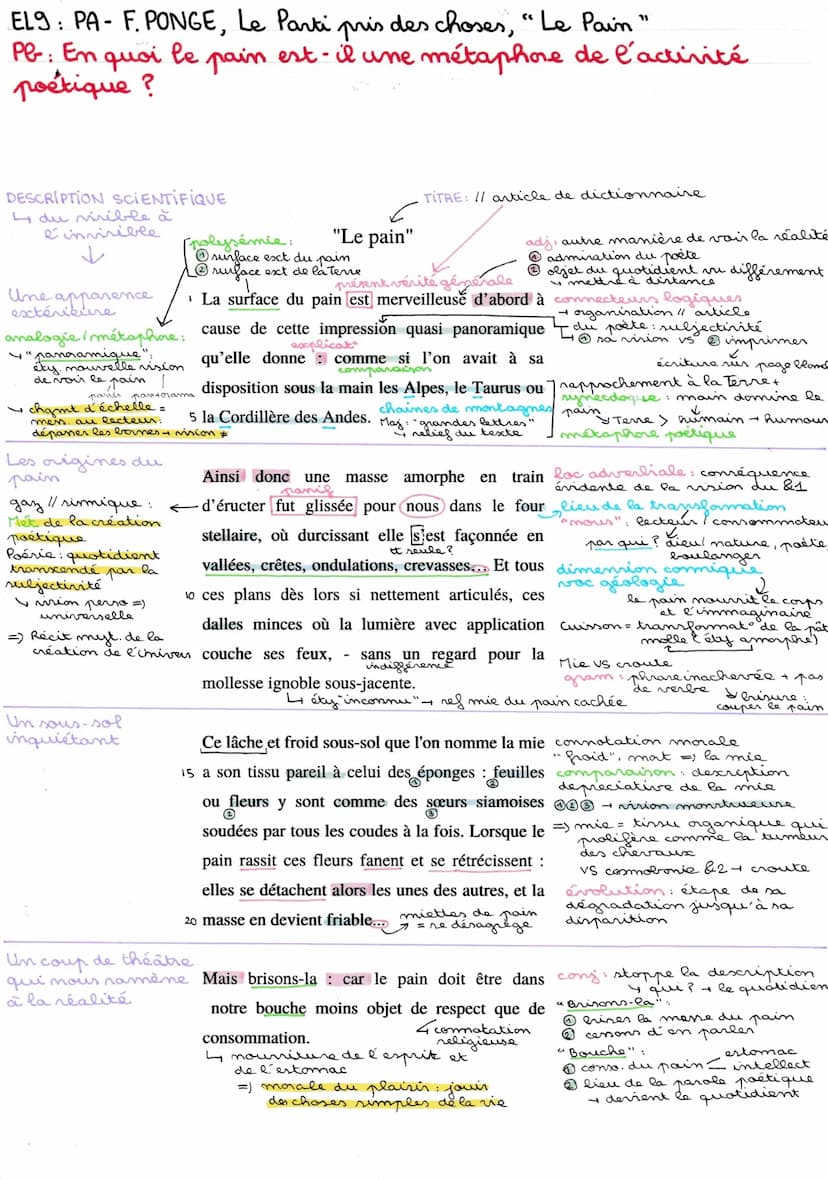 EL9 : PA - F. PONGE, Le Parti pris des choses, "Le Pain"
Pb : En quoi le pain est-il une métaphore de l'activité
poétique ?
DESCRIPTION SCIENTIFIQUE
↳ du visible à
l'invisible
TITRE : // article de dictionnaire
"Le pain"
polysémie :
① surface ext du pain
② surface ext de la Terre
présent vérité générale
adj : autre manière de voir la réalité
① admiration du poète
② objet du quotidien vu différement
→ mettre à distance
Une apparence
extérieure
analogie / métaphore :
↳ "panoramique" :
éty. nouvelle vision
de voir le pain
panis panorama
↳ chgmt d'échelle =
mens. au lecteur :
dépasser les bornes → vision ≠
1 La surface du pain est merveilleuse d'abord à
cause de cette impression quasi panoramique
explicat°
qu'elle donne : comme si l'on avait à sa
comparaison
disposition sous la main les Alpes, le Taurus ou
5 la Cordillère des Andes.
chaînes de montagnes
Maj : "grandes lettres"
↳ relief du texte
connecteurs logiques
→ organisation // article
du poète : subjectivité
↳ ① sa vision vs ② imprimer
écriture sur page blanche
rapprochement à la Terre +
synecdoque : main domine le
pain
↳ Terre > humain → humour
métaphore poétique
Les origines du
pain
gaz // sismique :
Mét de la création
poétique
Poésie : quotidient
transcendé par la
subjectivité
↳ vision perso =)
universelle
=) Récit myt. de la
création de l'Univers
Ainsi donc une masse amorphe en train
panis
d'éructer fut glissée pour nous dans le four
stellaire, où durcissant elle s'est façonnée en
tt seule ?
vallées, crêtes, ondulations, crevasses... Et tous
10 ces plans dès lors si nettement articulés, ces
dalles minces où la lumière avec application
couche ses feux, - sans un regard pour la
indifférence
mollesse ignoble sous-jacente.
↳ éty "inconnu" → ref mie du pain cachée
loc adverbiale : conséquence
évidente de la vision du §1
lieu de la transformation
"nous" : lecteur / consommateur
par qui ? dieu / nature, poète,
boulanger
dimension cosmique
voc géologie
le pain nourrit le corps
et l'immaginaire
Cuisson = transformat° de la pât
molle (éty amorphe)
Mie VS croute
gram : phrase inachevée + pas
de verbe
↳ brisure :
couper le pain
Un sous-sol
inquiétant
Ce lâche et froid sous-sol que l'on nomme la mie
15 a son tissu pareil à celui des éponges : feuilles
① ②
ou fleurs y sont comme des sœurs siamoises
② ③
soudées par tous les coudes à la fois. Lorsque le
pain rassit ces fleurs fanent et se rétrécissent :
elles se détachent alors les unes des autres, et la
20 masse en devient friable...
miettes de pain
= se désagrège
connotation morale
"froid", mort =) la mie
comparaison : description
depreciative de la mie
①②③ → vision monstrueuse
=) mie = tissu organique qui
prolifère comme la tumeur
des chevaux
VS cosmobronie §2 → croute
évolution : étape de sa
dégradation jusqu'à sa
disparition
Un coup de théâtre
qui nous ramène
à la réalité
Mais brisons-la : car le pain doit être dans
notre bouche moins objet de respect que de
consommation.
connotation
religieuse
↳ nourriture de l'esprit et
de l'estomac
=) morale du plaisir : jouir
des choses simples de la vie
conj : stoppe la description
↳ qui ? → le quotidien
"Brisons-la" :
① briser la masse du pain
② cessons d'en parler
"Bouche" :
① conso. du pain
estomac
intellect
② lieu de la parole poétique
→ devient le quotidient